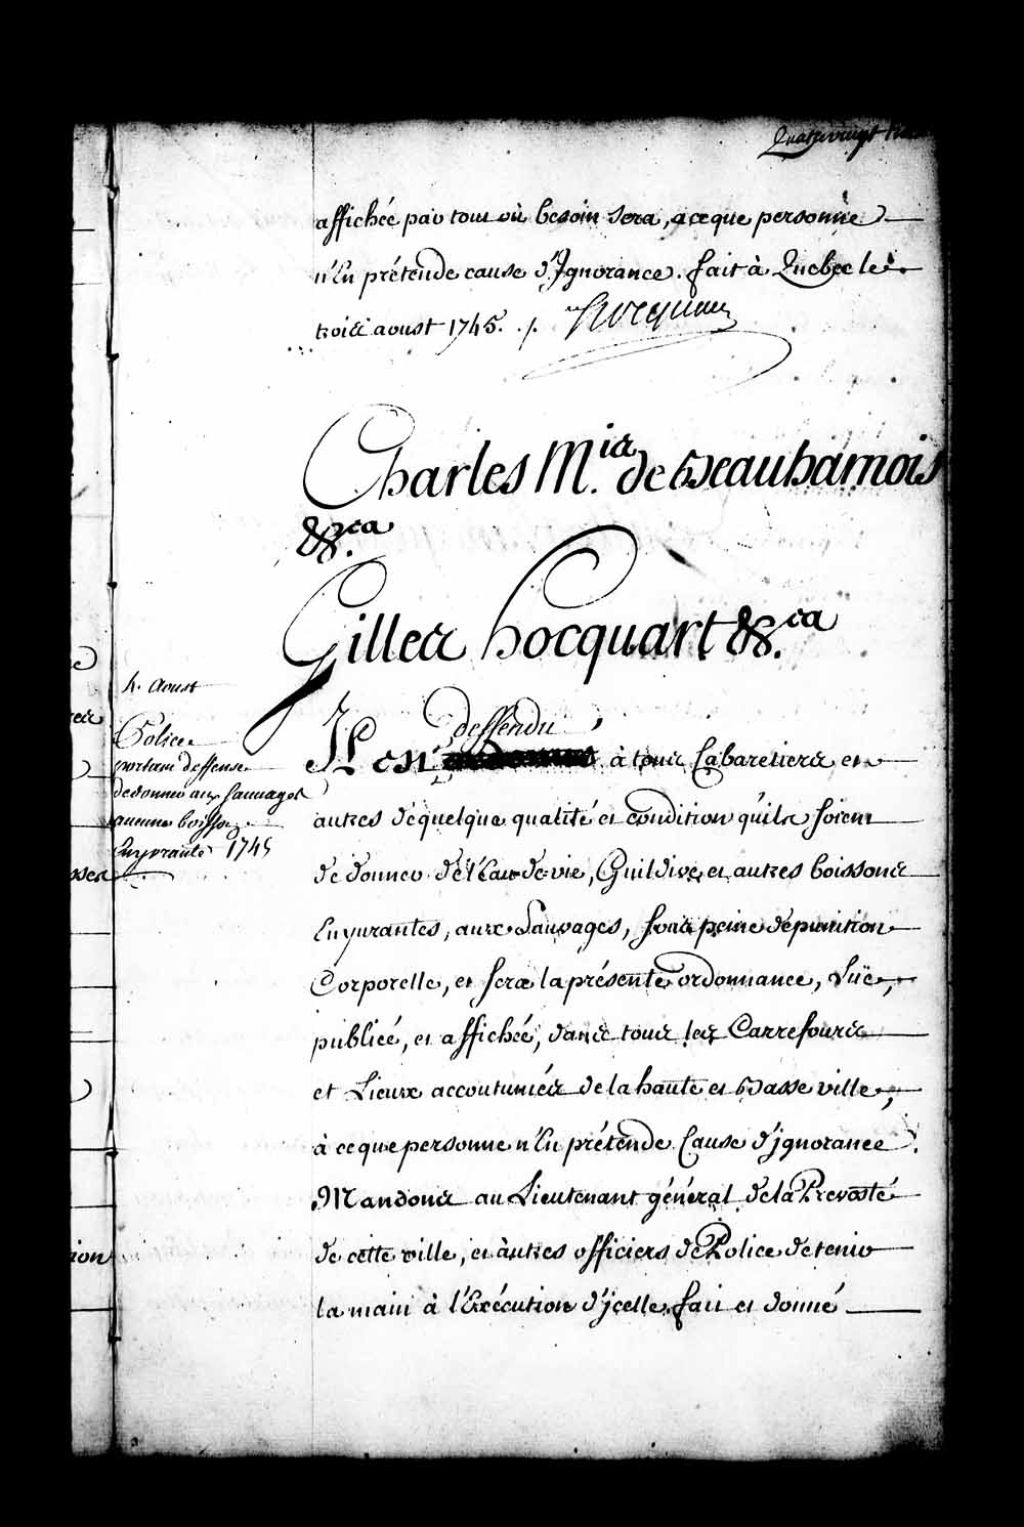 Quatrevingt
affichée par tout où besoin sera, a ceque personne
n'En prétende cause d'Ignorance. fait à Quebec le
trois aoust 1745. ./. Hocquart
Charles M.is de Beauharnois
&.ca
Gilles hocquart &.ca
4. Aoust
Police
portant deffense
de donner aux sauvages
aucune boisson
Enyvrante 1745
deffendu
Il est à tous Cabaretiers et
autres de quelque qualité et condition qu'ils soient
de donner de l'Eau de vie, Guildive et autres boissons
Enyvrantes, aux Sauvages, sous peine de punition
Corporelle, et sera la présente ordonnance, Luë,
publiée, et affichée, dans tous les Carrefours
et Lieux accoutumés de la haute et Basse ville,
à ceque personne n'En prétende Cause d'jgnorance.
Mandons au Lieutenant général de la Prevosté
de cette ville, et àutres officiers de Police de tenir
la main à l'Exécution d'jcelle. fait et donné